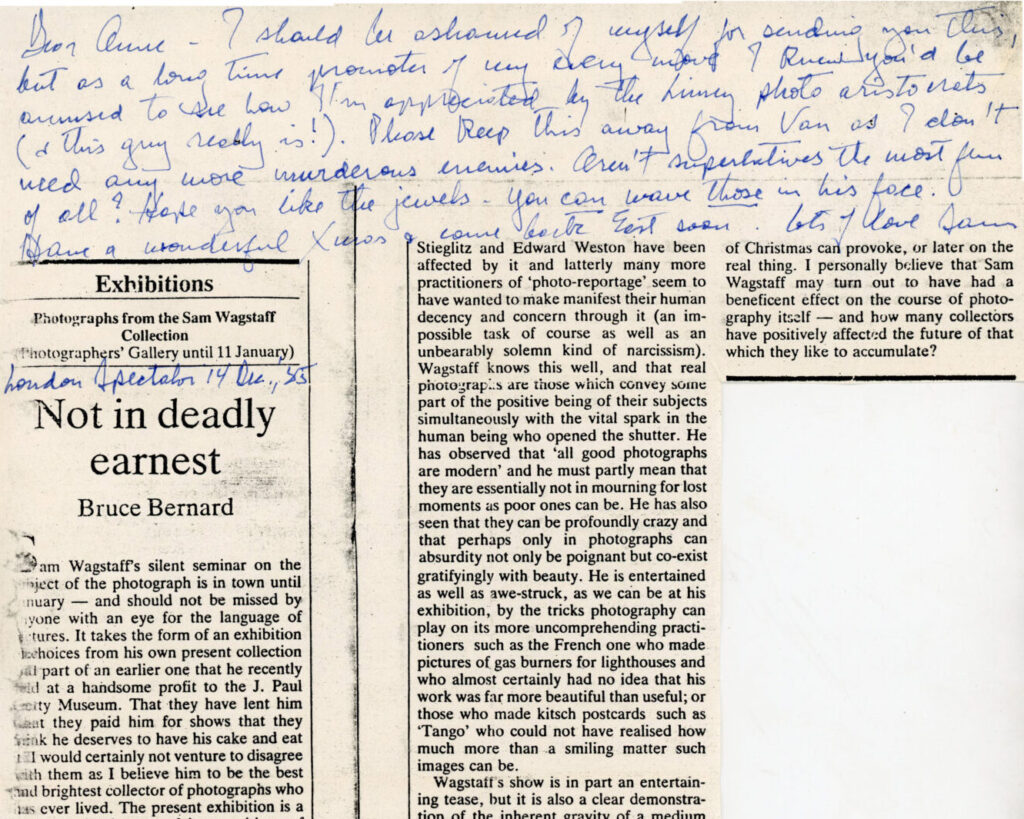 Dear Anne – I should be ashamed of myself for sending you this,
but as a long time promoter of my every move I knew you'd be
amused to see how I'm appreciated by the Limey photo aristocrats
(& this guy really is!). Please keep this away from Van as I don't
need any more murderous enemies. Aren't superlatives the most fun
of all? Hope you like the jewels – you can wave those in his face.
Have a wonderful Xmas & come back East soon. Lots of love Sam
Exhibitions
Photographs from the Sam Wagstaff
Collection
Photographers' Gallery until 11 January)
London Spectator 14 Dec., '85
Not in deadly
earnest
Bruce Bernard
Sam Wagstaff's silent seminar on the
subject of the photograph is in town until
January — and should not be missed by
anyone with an eye for the language of
pictures. It takes the form of an exhibition
choices from his own present collection
part of an earlier one that he recently
sold at a handsome profit to the J. Paul
Getty Museum. That they have lent him
what they paid him for shows that they
think he deserves to have his cake and eat
it. I would certainly not venture to disagree
with them as I believe him to be the best
and brightest collector of photographs who
has ever lived. The present exhibition is a
Stieglitz and Edward Weston have been
affected by it and latterly many more
practitioners of 'photo-reportage' seem to
have wanted to make manifest their human
decency and concern through it (an im-
possible task of course as well as an
unbearably solemn kind of narcissism).
Wagstaff knows this well, and that real
photographs are those which convey some
part of the positive being of their subjects
simultaneously with the vital spark in the
human being who opened the shutter. He
has observed that 'all good photographs
are modern' and he must partly mean that
they are essentially not in mourning for lost
moments as poor ones can be. He has also
seen that they can be profoundly crazy and
that perhaps only in photographs can
absurdity not only be poignant but co-exist
gratifyingly with beauty. He is entertained
as well as awe-struck, as we can be at his
exhibition, by the tricks photography can
play on its more uncomprehending practi-
tioners such as the French one who made
pictures of gas burners for lighthouses and
who almost certainly had no idea that his
work was far more beautiful than useful; or
those who made kitsch postcards such as
'Tango' who could not have realised how
much more than a smiling matter such
images can be.
Wagstaff's show is in part an entertain-
ing tease, but it is also a clear demonstra-
tion of the inherent gravity of a medium
of Christmas can provoke, or later on the
real thing. I personally believe that Sam
Wagstaff may turn out to have had a
beneficent effect on the course of photo-
graphy itself — and how many collectors
have positively affected the future of that
which they like to accumulate?